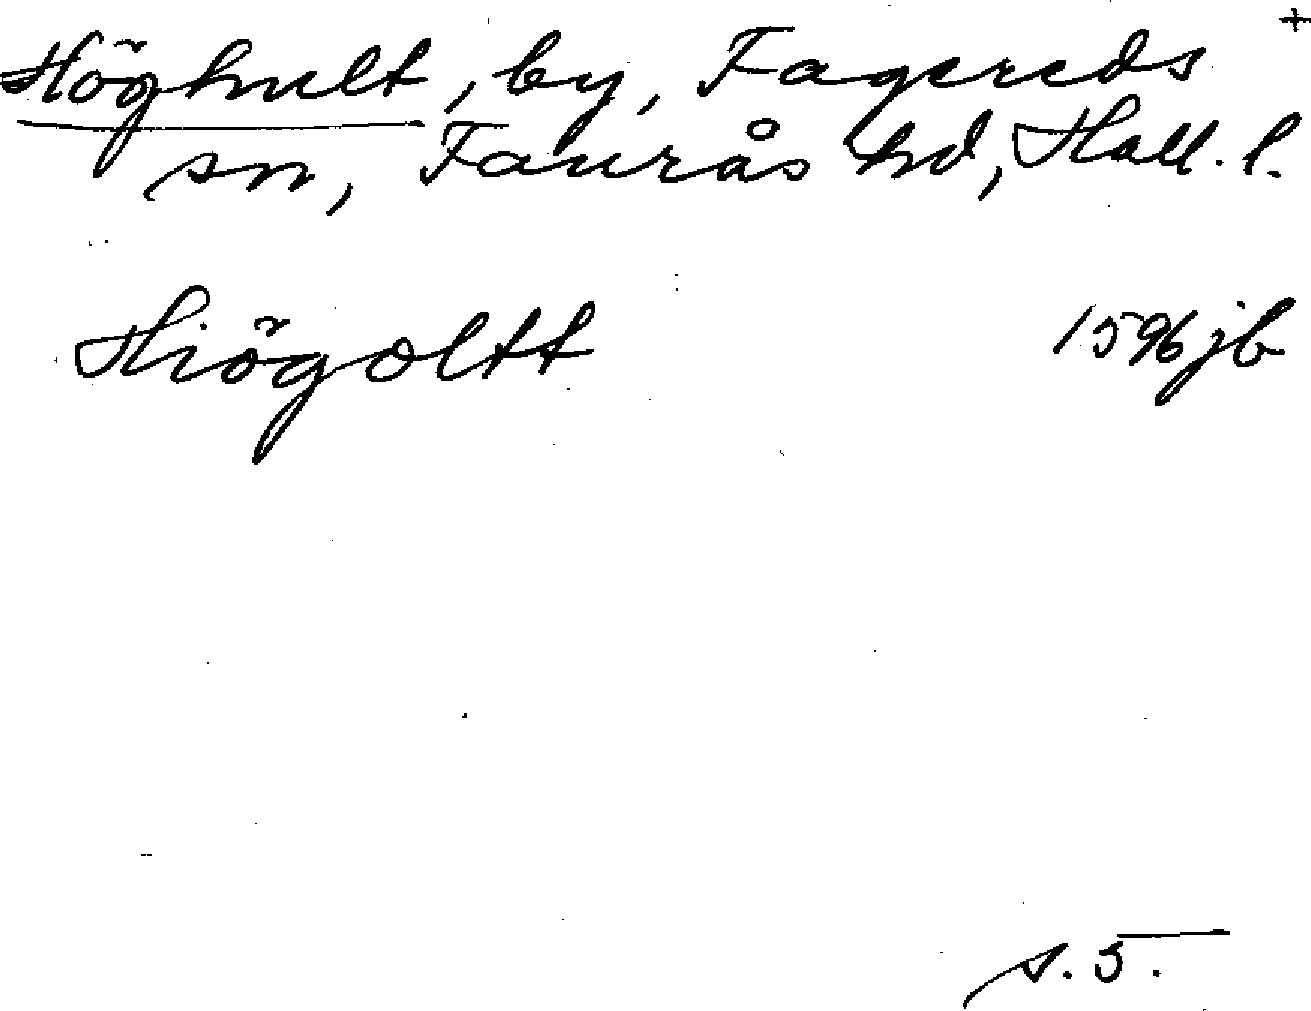 +
Höghult, by, Fagereds
sn, Faurås hd, Hall. l.
Hiögoltt 1596 jb
s. 5.